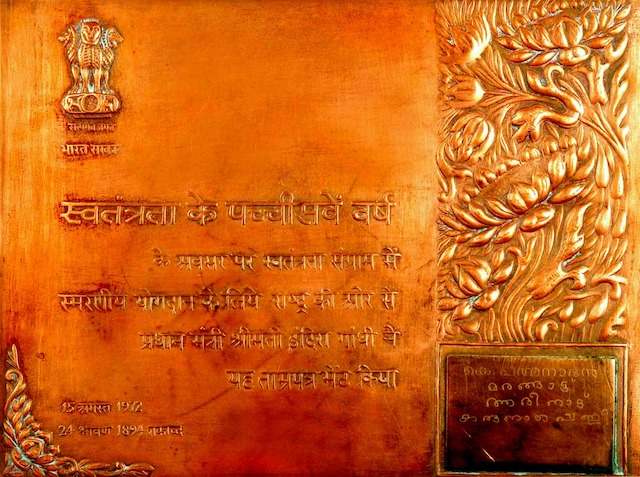 सत्यमेव जयते
भारत सरकार
स्वतंत्रता के पच्चीसवें वर्ष
के अवसर पर स्वतंत्रता संग्राम में
स्मरणीय योगदान के लिये राष्ट्र की ओर से
प्रधान मंत्री श्रीमती इंदिरा गांधी ने
यह ताम्रपत्र भेंट किया
15 अगस्त 1972
24 श्रावण 1894 शकाब्द
കെ. പത്മനാഭൻ